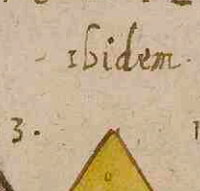 ibidem.
3.